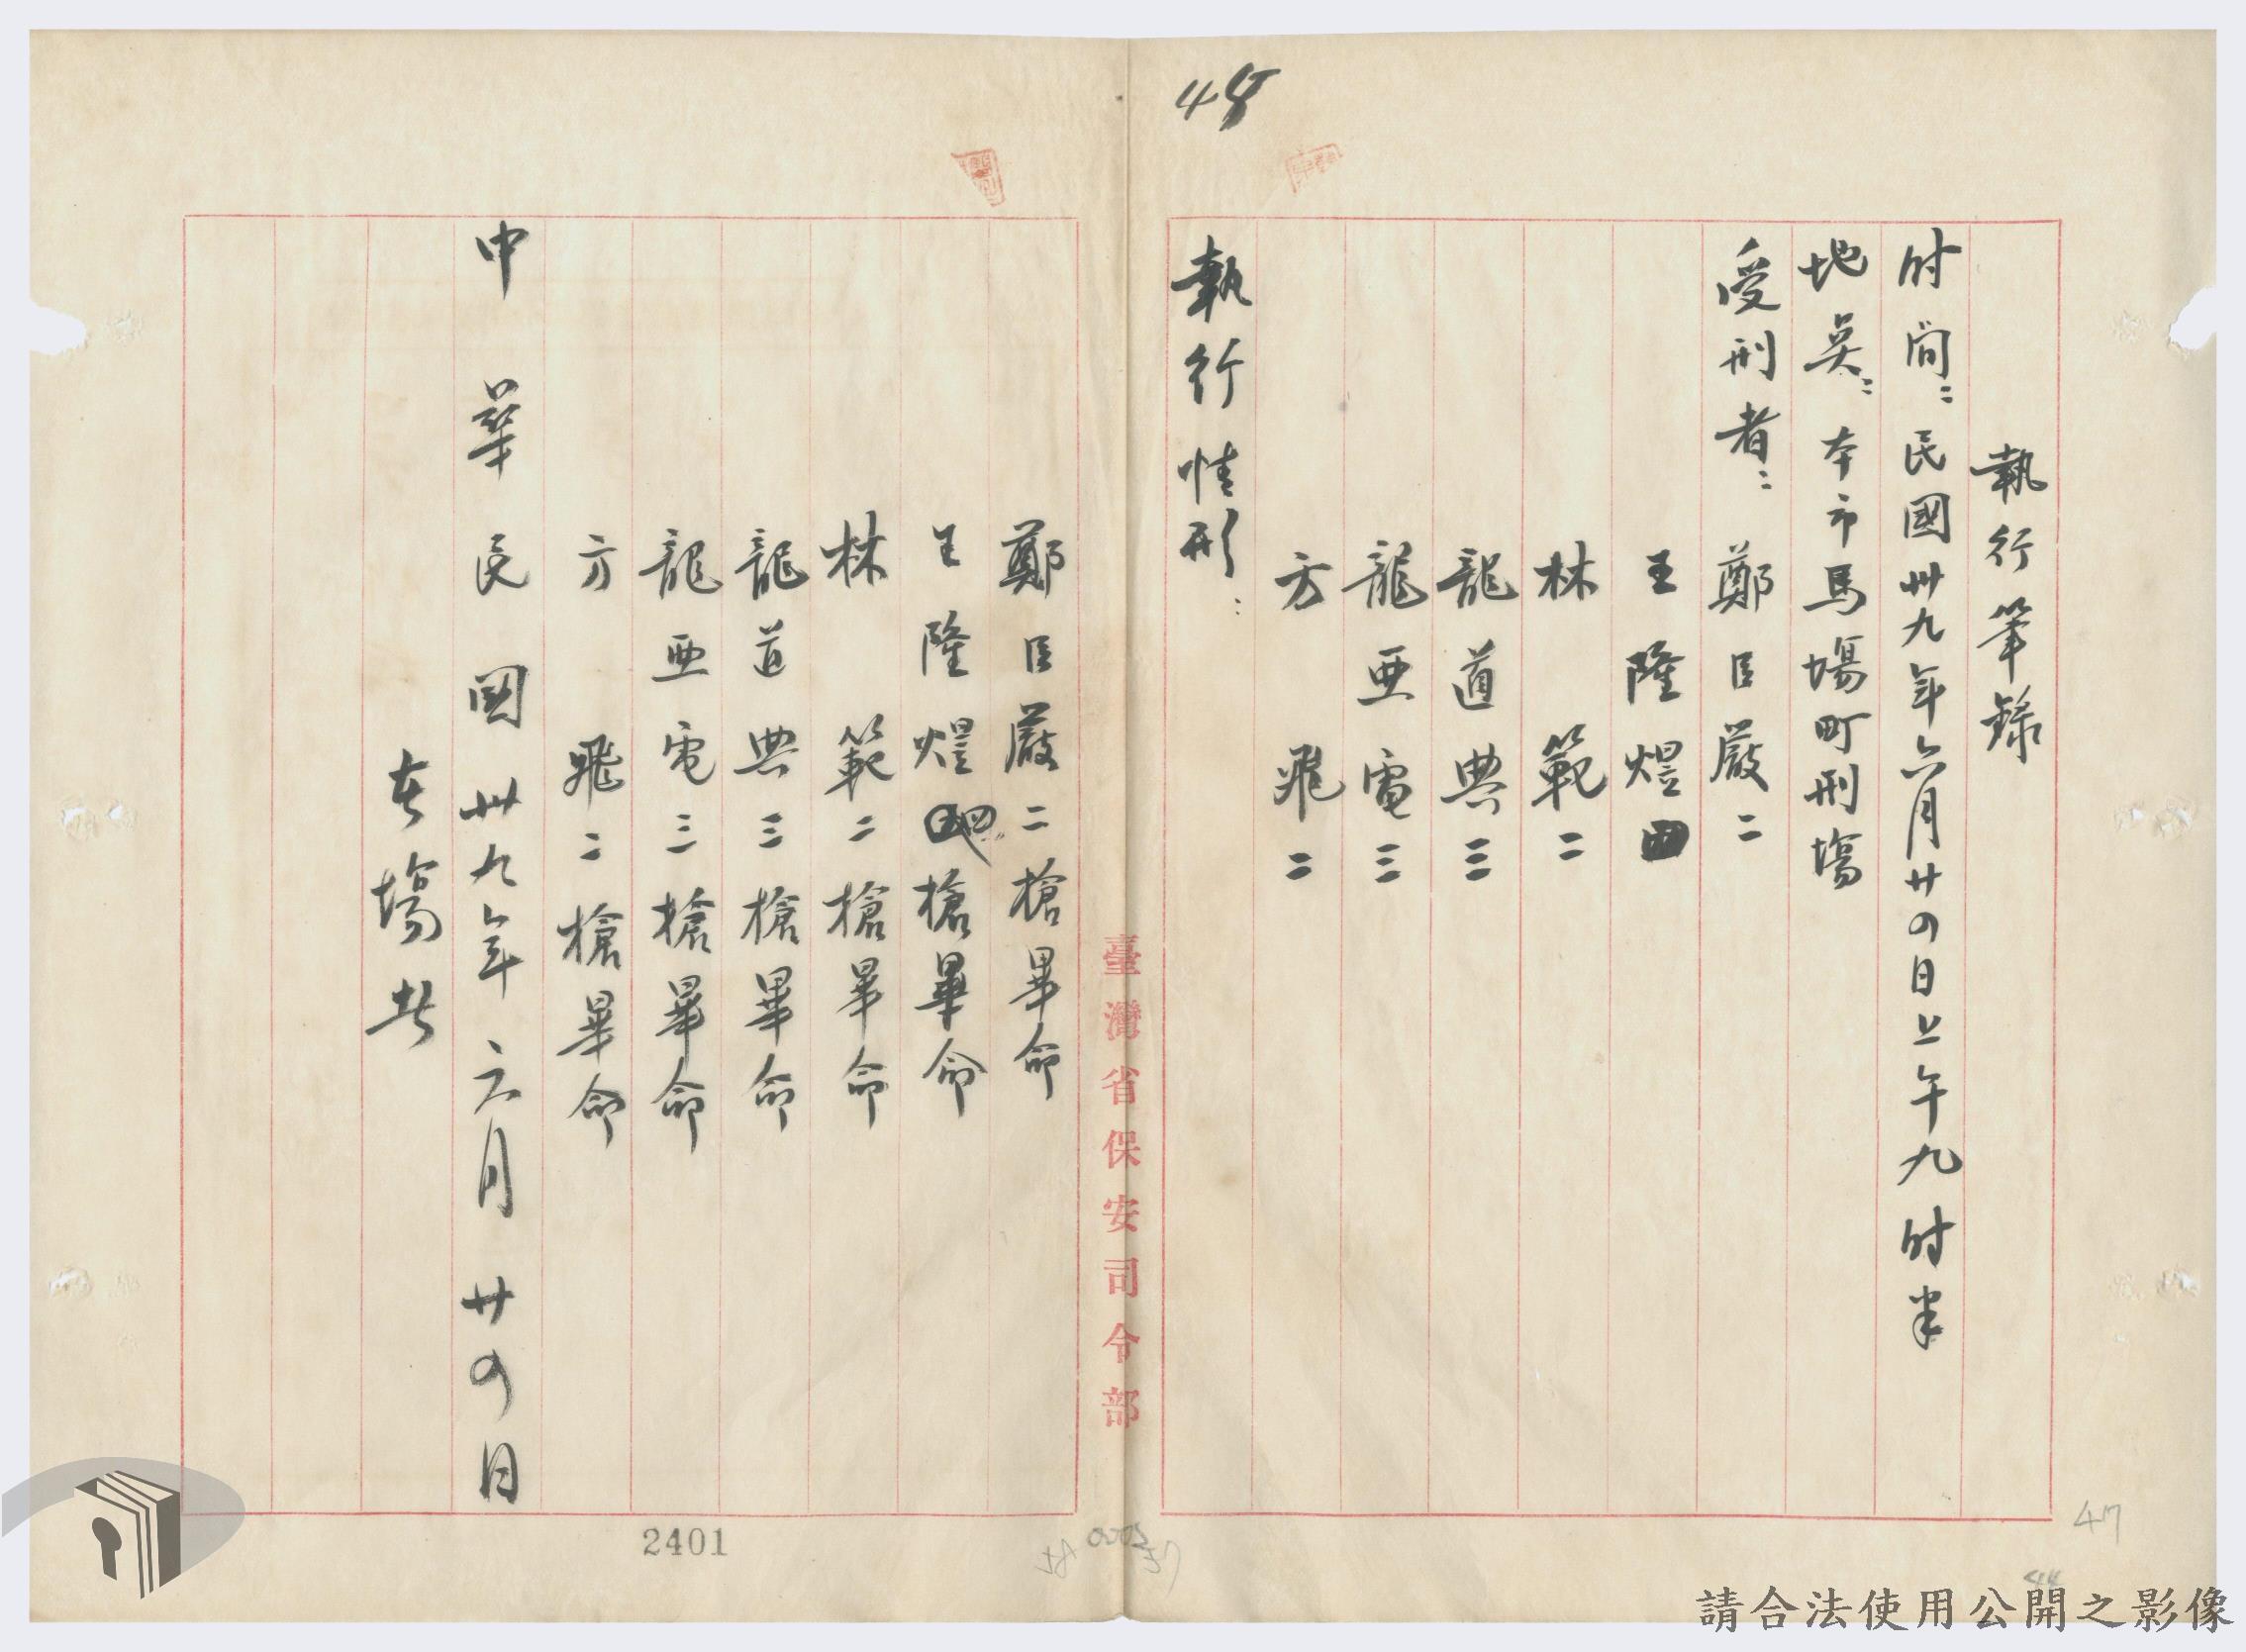 48
執行筆錄
时间：民國卅九年六月廿四日上午九时半
地点：本市馬場町刑場
受刑者：鄭臣嚴二
王隆煜四
林範二
龍道典三
龍亜電三
方飛二
執行情形：
臺灣省保安司令部
鄭臣嚴二槍畢命
王隆煜四槍畢命
林範二槍畢命
龍道典三槍畢命
龍亜電三槍畢命
方飛二槍畢命
中華民國卅九年六月廿四日
在場者
2401
47
請合法使用公開之影像